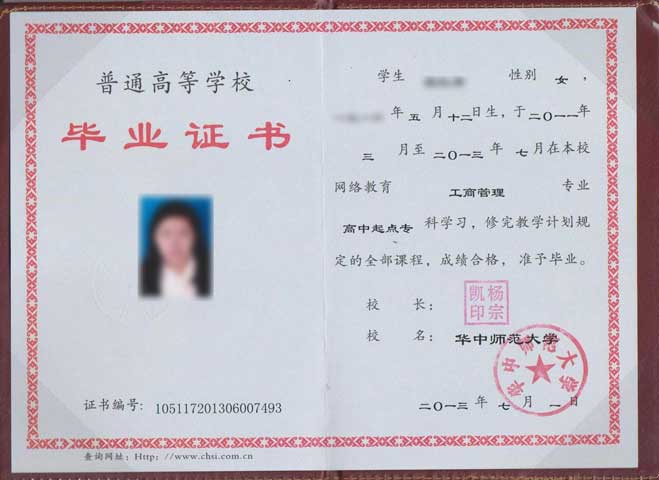 普通高等学校
毕业证书
证书编号：105117201306007493
查询网址：Http：//www.chsi.com.cn
学生 性别 女，
年 五 月 十二日生，于二〇一一年
三 月至 二〇一三 年 七月在本校
网络教育 工商管理 专业
高中起点专 科学习，修完教学计划规
定的全部课程，成绩合格，准予毕业。
校 长：
杨宗凯印
校 名：华中师范大学
华中师范大学
二〇一三 年 七 月 一 日